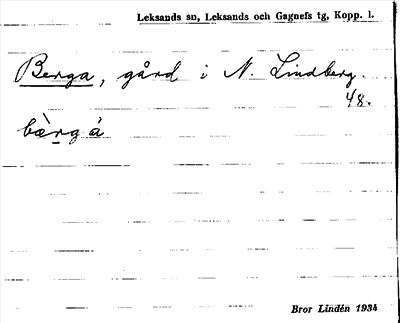 Leksands sn, Leksands och Gagnefs tg, Kopp. l.
Berga, gård i N. Lindberg.
48.
bærgȧ
Bror Lindén 1934